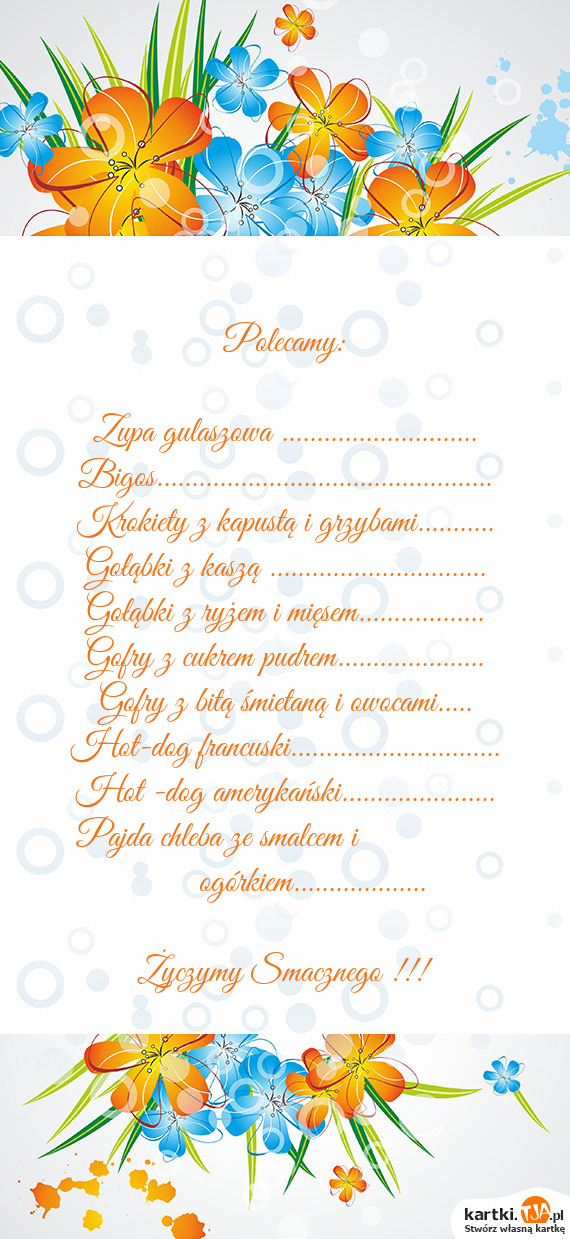 Polecamy:
Zupa gulaszowa ............................
Bigos................................................
Krokiety z kapustą i grzybami...........
Gołąbki z kaszą ...............................
Gołąbki z ryżem i mięsem..................
Gofry z cukrem pudrem.....................
Gofry z bitą śmietaną i owocami.....
Hot-dog francuski..............................
Hot -dog amerykański......................
Pajda chleba ze smalcem i
ogórkiem...................
Życzymy Smacznego !!!
kartki.TJA.pl
Stwórz własną kartkę